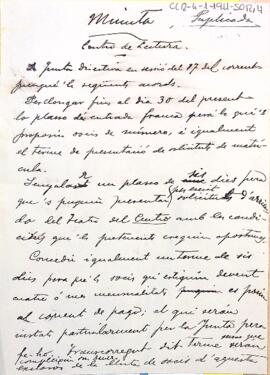 CCR-4-1-1911-SORT/4
Minuta
Duplicada
Centro de Lectura.
La Junta Directiva en sessió del 27 del corrent
prengué los següents acords.
Perllongar fins al dia 30 del present
lo plasso de entrada franca pera los que's
proposin socis de número, é igualment
el terme de presentació de solicitut de matrí-
cula.
Senyalar un plasso de dies pera
que's puguin presentar per escrit solicituts d'arrien-
do del Teatro del Centro amb las condi-
cions que los pertenents creguin oportunas.
Concedir igualment un terme de sis
dies pera que los socis que estiguin devent
cuatre ó mes mensualitats se posin
al corrent de pago; el que serán
instats particularment per la Junta pera
fe-ho. Trancorregut dit terme serán
exclosos de la llista de socis d'aquesta